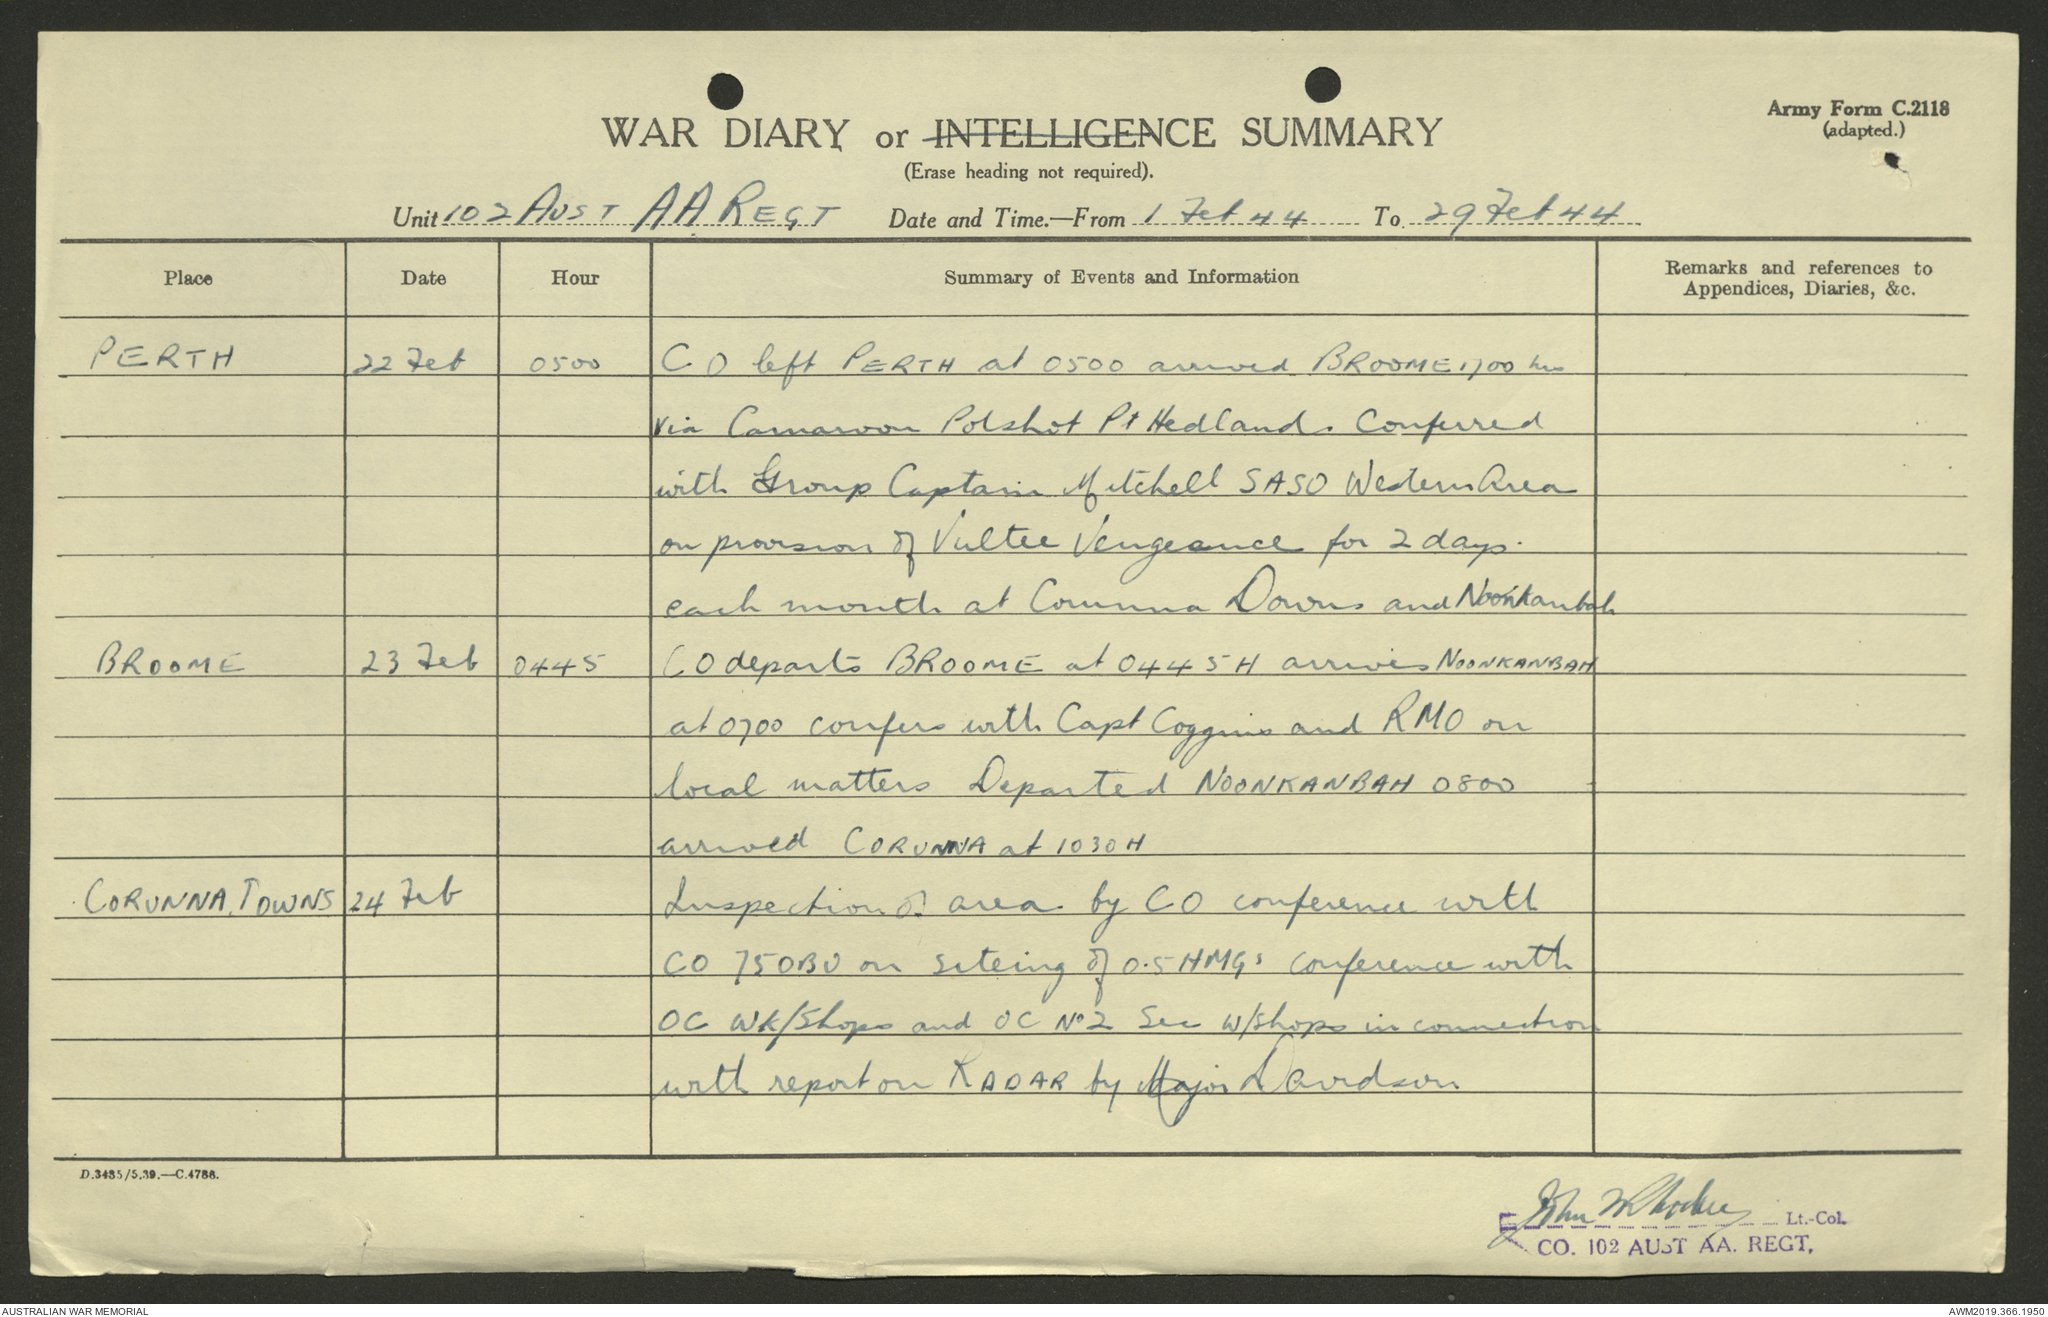 Army Form C.2118
(adapted.)
WAR DIARY or INTELLIGENCE SUMMARY
(Erase heading not required).
Unit 102 AUST AA REGT Date and Time.—From 1 Feb 44 To 29 Feb 44
Place Date Hour Summary of Events and Information Remarks and references to Appendices, Diaries, &c.
PERTH 22 Feb 0500 CO left PERTH at 0500 arrived BROOME 1700 hrs
via Carnarvon Potshot Pt Hedland. Conferred
with Group Captain Mitchell SASO Western Area
on provision of Vultee Vengeance for 2 days
each month at Corunna Downs and Noonkanbah
BROOME 23 Feb 0445 CO departs BROOME at 0445H arrives NOONKANBAH
at 0700 confers with Capt Coggins and RMO on
local matters Departed NOONKANBAH 0800
arrived CORUNNA at 1030H
CORUNNA DOWNS 24 Feb Inspection of area by CO conference with
CO 75OBU on siteing of 0.5 HMGs conference with
OC WK/Shops and OC No 2 Sec W/Shops in connection
with report on RADAR by Major Davidson
D.3485/5.39.—C.4788.
John Lt.-Col.
CO. 102 AUST AA. REGT,
AUSTRALIAN WAR MEMORIAL AWM2019.366.1950